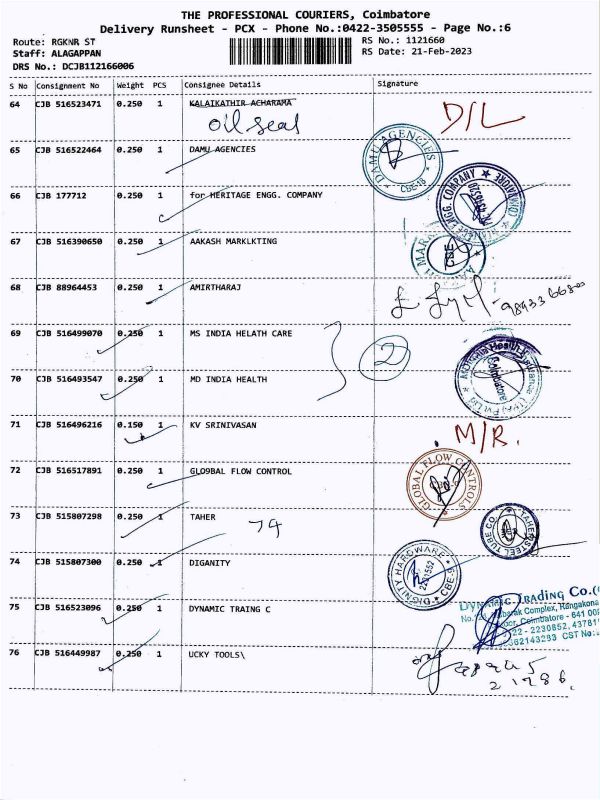 THE PROFESSIONAL COURIERS, Coimbatore
Delivery Runsheet - PCX - Phone No.:0422-3505555 - Page No.:6
Route: RGKNR ST
RS No.: 1121660
Staff: ALAGAPPAN
RS Date: 21-Feb-2023
DRS No.: DCJB112166006
S No Consignment No Weight PCS Consignee Details Signature
64 CJB 516523471 0.250 1 KALAIKATHIR ACHARAMA
oil seal D/L
65 CJB 516522464 0.250 1 DAMU AGENCIES
DAMU AGENCIES
66 CJB 177712 0.250 1 for HERITAGE ENGG. COMPANY
ENGG. COMPANY
67 CJB 516390650 0.250 1 AAKASH MARKLKTING
68 CJB 88964453 0.250 1 AMIRTHARAJ
69 CJB 516499070 0.250 1 MS INDIA HELATH CARE
2
70 CJB 516493547 0.250 1 MD INDIA HEALTH
Coimbatore
71 CJB 516496216 0.150 1 KV SRINIVASAN
M/R.
72 CJB 516517891 0.250 1 GLO9BAL FLOW CONTROL
GLOBAL FLOW CONTROLS
73 CJB 515807298 0.250 1 TAHER
74
TAHER STEEL TUBE CO.
74 CJB 515807300 0.250 1 DIGANITY
DIGNITY HARDWARE
CBE-9
75 CJB 516523096 0.250 1 DYNAMIC TRAING C
DYNAMIC TRADING Co.
Complex, Rangakona
Coimbatore - 641 00
- 2230852, 43781
CST No:
76 CJB 516449987 0.250 1 UCKY TOOLS\